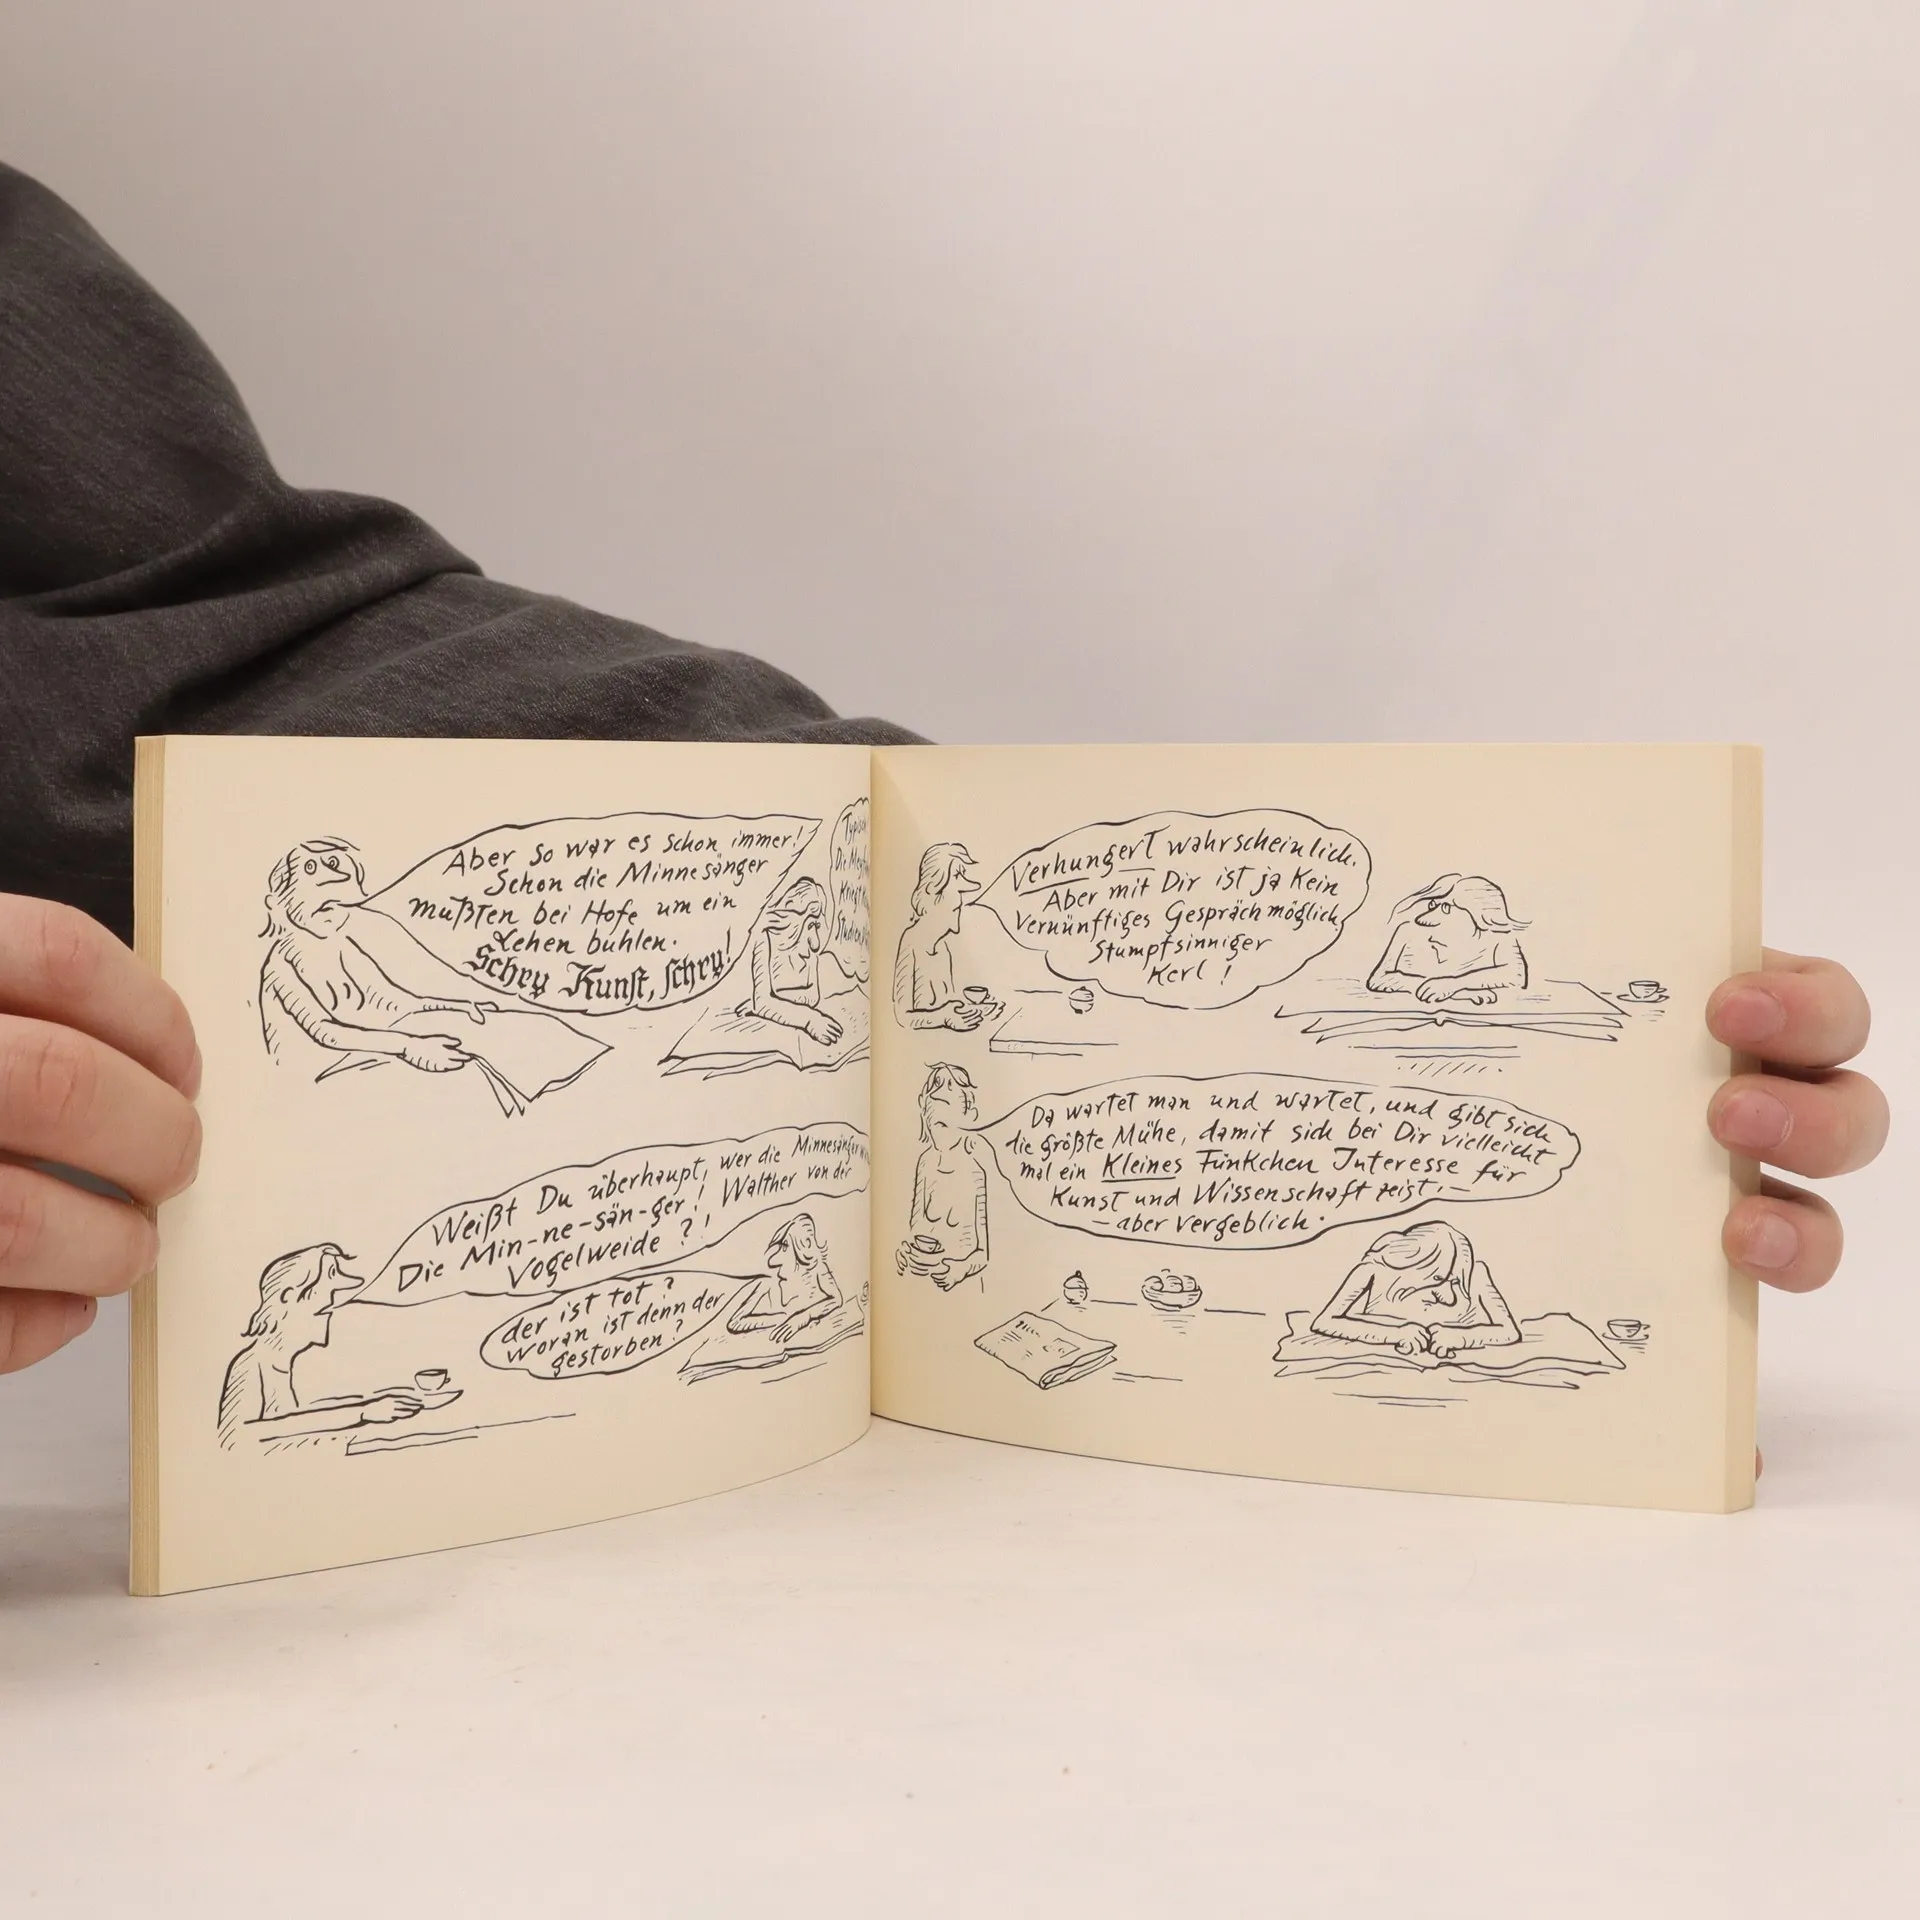 Aber so war es schon immer!
Schon die Minnesänger
mußten bei Hofe um ein
Lehen buhlen.
Schry Kunst, schry!
Weißt Du überhaupt, wer die Minnesänger
Die Min-ne-sän-ger! Walther von der
Vogelweide ?!
der ist tot?
woran ist denn der
gestorben?
Verhungert wahrscheinlich.
Aber mit Dir ist ja kein
vernünftiges Gespräch möglich,
Stumpfsinniger
Kerl!
Da wartet man und wartet, und gibt sich
die größte Mühe, damit sich bei Dir vielleicht
mal ein Kleines Fünkchen Interesse für
Kunst und Wissenschaft zeigt, –
– aber vergeblich.